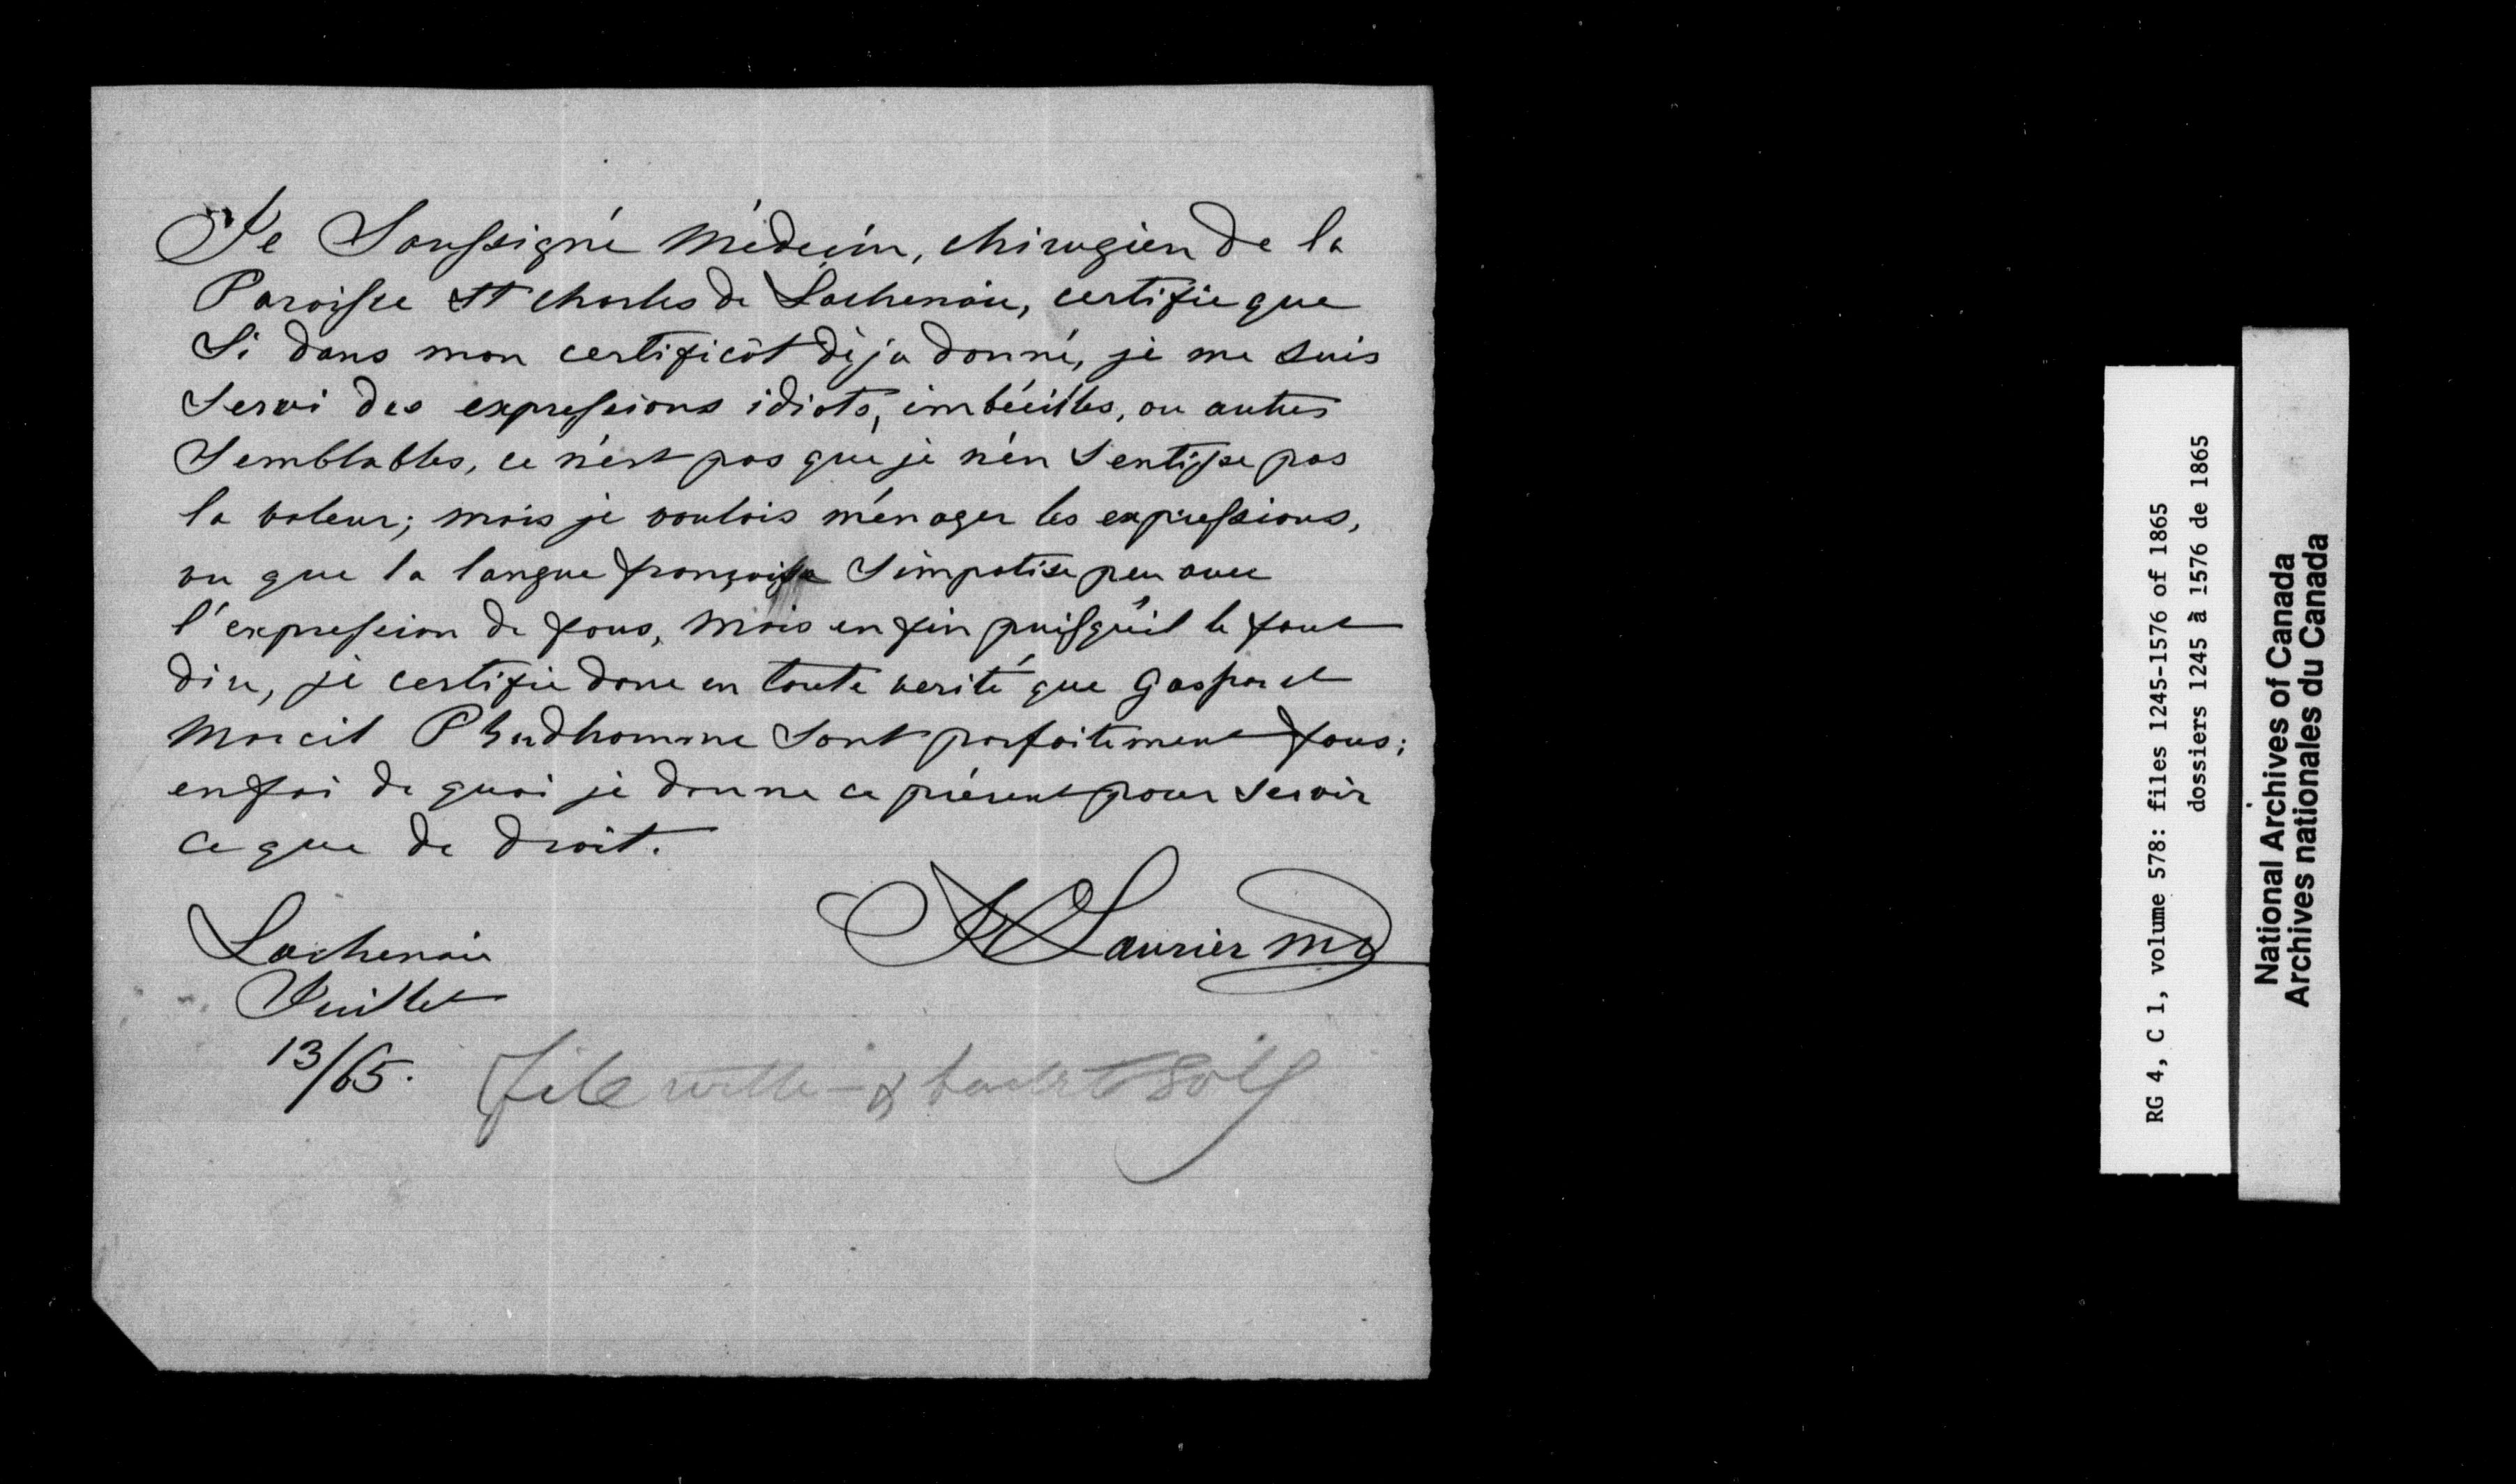 Je Soussigné Médecin, chirugien de la
Paroisse St Charles de Lachenaie, certifie que
Si dans mon certificât déja donné, je me suis
Servi des expressions idiots, imbéciles, ou autres
Semblables, ce n'est pas que je n'en Sentisse pas
la valeur; mais je voulais ménager les expressions,
vu que la langue française Simpatise peu avec
l'expression de fous, mais enfin puisqu'il le faut
dire, je certifie donc en toute verité que Gaspar et
Marcil Prudhomme Sont parfaitement fous;
en foi de quoi je donne ce présent pour Servir
ce que de droit.
Laurier MD
Lachenaie
Juillet
13/65.
file with
RG 4, C 1, volume 578: files 1245-1576 of 1865
dossiers 1245 à 1576 de 1865
National Archives of Canada
Archives nationales du Canada